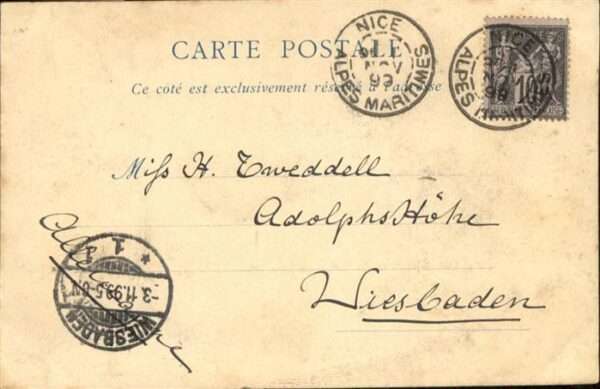 CARTE POSTALE
Ce côté est exclusivement réservé à l'adresse
NICE
NOV
99
ALPES MARITIMES
NICE
NOV
99
ALPES MARITIMES
10
Miss H. Tweddell
Adolphs Höhe
Wiesbaden
1
1
*
-3.11.99.5-6N
WIESBADEN